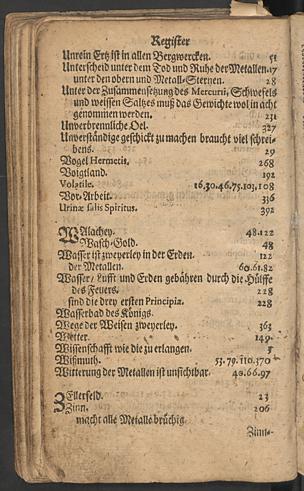 Register
Unrein Ertz ist in allen Bergwercken. 51
Unterscheid unter dem Tod und Ruhe der Metallen. 17
unter den obern und Metall-Sternen. 28
Unter der Zusammensetzung des Mercurii, Schwefels
und weissen Saltzes muß das Gewichte wol in acht
genommen werden. 231
Unverbrennliche Oel. 327
Unverständige geschickt zu machen braucht viel schrei-
bens. 29
Vogel Hermetis. 268
Voigtland. 192
Volatile. 16,30.46.75.103,108
Vor-Arbeit. 336
Urinæ salis Spiritus. 392
WAlachey. 48.122
Wasch-Gold. 48
Wasser ist zweyerley in der Erden. 122
der Metallen. 60.61.82
Wasser/ Lufft und Erden gebähren durch die Hülffe
des Feuers. 228
sind die drey ersten Principia. 228
Wasserbad des Königs.
Wege der Weisen zweyerley. 363
Wetter. 149
Wissenschafft wie die zu erlangen. 5
Wißmuth. 53.79.110.370
Witterung der Metallen ist unsichtbar. 40.66.97
ZEllerfeld. 23
Zinn. 206
macht alle Metalle brüchig.
Zinn-